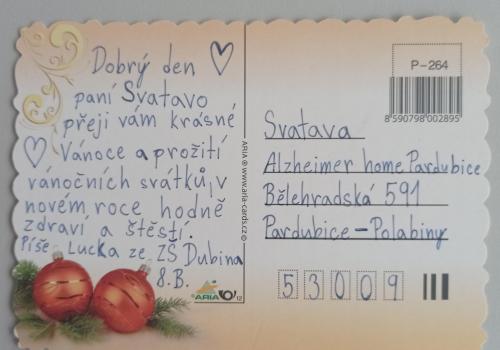 Dobrý den
paní Svatavo
přeji vám krásné
Vánoce a prožití
vánočních svátků, v
novém roce hodně
zdraví a štěstí.
Píše Lucka ze ZŠ Dubina
8.B.
ARIA
12
ARIA ® www.aria-cards.cz ©
P-264
8590798002895
Svatava
Alzheimer home Pardubice
Bělehradská 591
Pardubice-Polabiny
53009